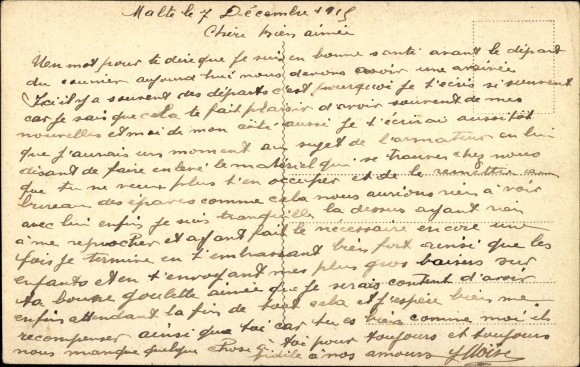 Malte le 7 Décembre 1915
Chère bien aimée
Un mot pour te dire que je suis en bonne santé avant le départ
du courrier aujourd'hui nous devons avoir une arrivée
Ici il y a souvent des départs c'est pourquoi je t'écris si souvent
car je sais que cela te fait plaisir d'avoir souvent de mes
nouvelles et moi de mon côté aussi je t'écrirai aussitôt
que j'aurais un moment au sujet de l'armateur en lui
disant de faire enlevé le matériel qui se trouve chez nous
que tu ne veux plus t'en occuper et de le remettre au
bureau des épaves comme cela nous aurions rien à voir
avec lui enfin je suis tranquille la dessus ayant rien
à me reprocher et ayant fait le nécessaire encore une
fois je termine en t'embrassant bien fort ainsi que les
enfants et en t'envoyant mes plus gros baisers sur
ta bonne goulette aimée que je serais content d'avoir
enfin attendant la fin de tout cela et j'espère bien me
recompenser ainsi que toi car tu es bien comme moi il
nous manque quelque chose à toi pour toujours et toujours
fidèle à nos amours